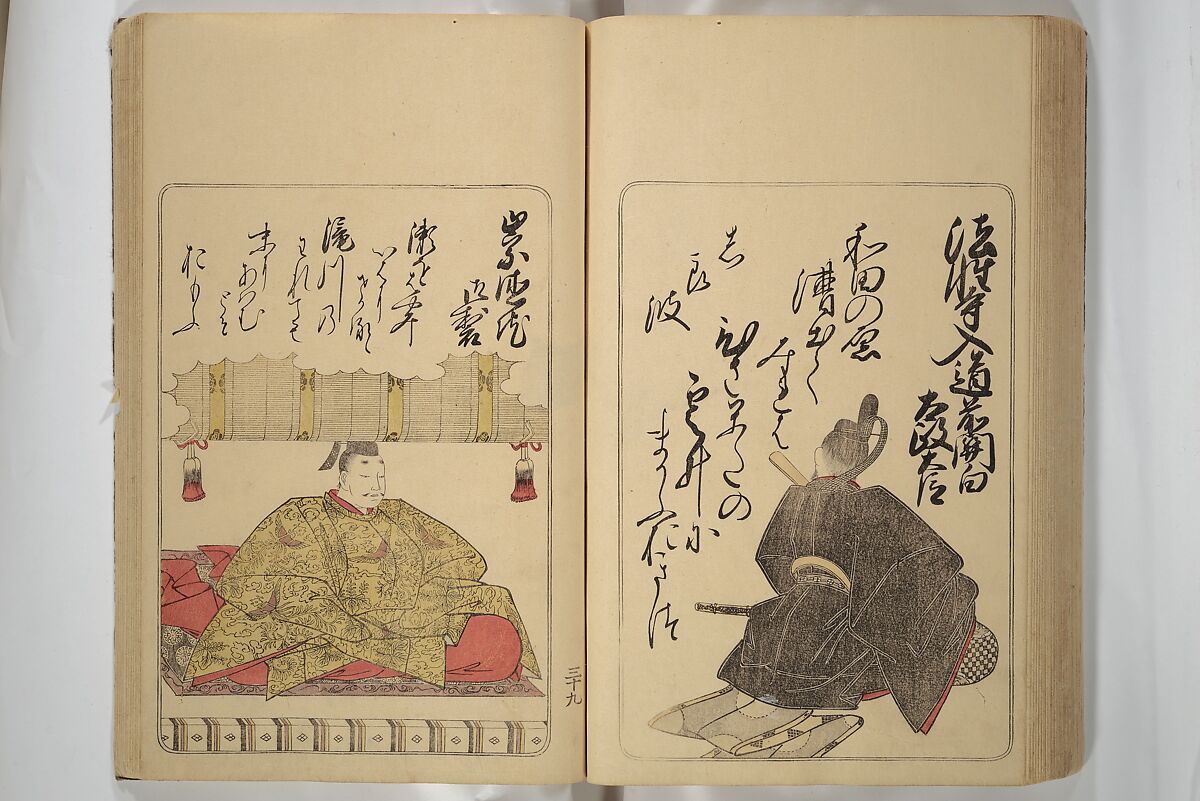 法性寺入道前関白
太政大臣
和田の原
漕出て
みれは
ひさかたの
雲井に
まかふおきつ
志
良
波
崇徳院
御製
瀬をはやみ
いはに
せかるゝ
滝川乃
われても
末に
あはむ
とそ
おもふ
三十九